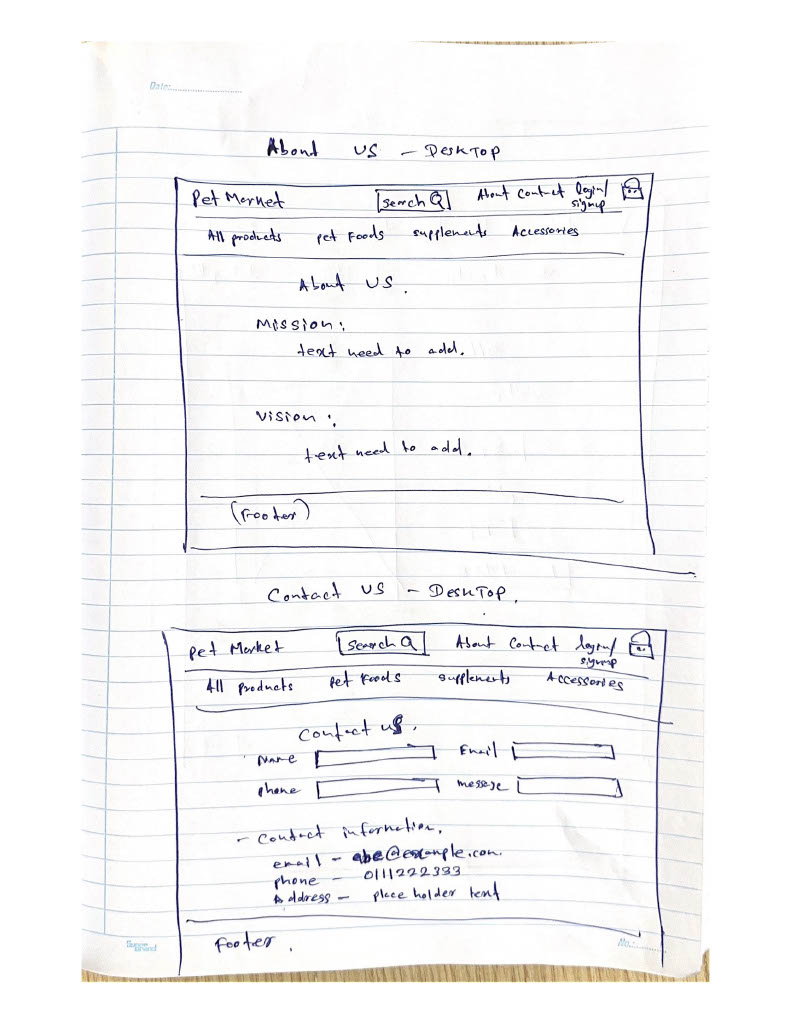 Date:
About US - DESKTOP
Pet Market Search About Contact login/ signup
All products pet Foods supplements Accessories
About US.
Mission:
text need to add.
Vision:
text need to add.
(Footer)
Contact US - DESKTOP.
Pet Market Search About Contact login/ signup
All Products Pet Foods supplements Accessories
Contact us.
Name Email
Phone message
- Contact information.
email - abc@example.com.
phone - 0111222333
Address - place holder text
Footer.
No.: